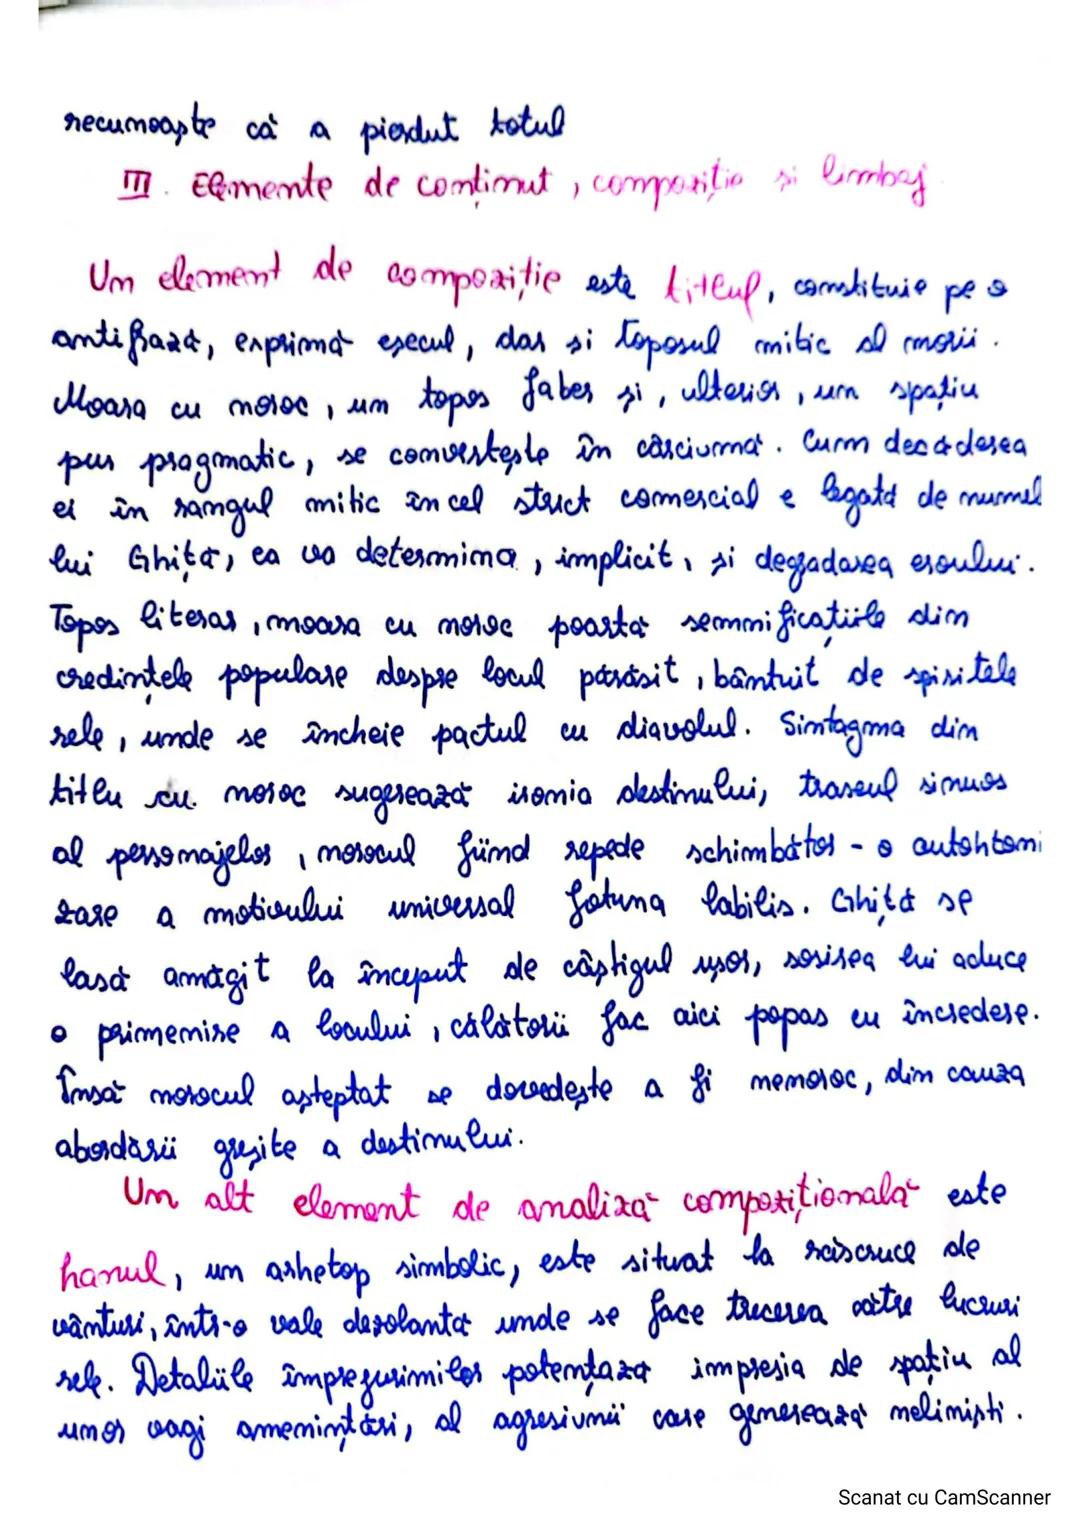 recunoaște că a pierdut totul
III. Elemente de conținut, compoziție și limbaj
Un element de compoziție este titlul, constituie pe o
antifrază, exprimă eșecul, dar si toposul mitic al morii.
Moara cu noroc, un topos faber și, ulterior, un spațiu
pur pragmatic, se convertește în cârciumă. Cum decăderea
ei în rangul mitic în cel strict comercial e legată de numele
lui Ghiță, ea va determina, implicit, și degradarea eroului.
Topos literar, moara cu noroc poartă semnificațiile din
credințele populare despre locul părăsit, bântuit de spiritele
rele, unde se încheie pactul cu diavolul. Sintagma din
titlu cu noroc sugerează ironia destinului, traseul sinuos
al personajelor, norocul fiind repede schimbător - o autohtoni
zare a motivului universal fotuna labilis. Ghiță se
lasă amăgit la început de câștigul ușor, sosirea lui aduce
o primenire a locului, călătorii fac aici popas cu încredere.
Însă norocul așteptat se dovedește a fi nenoroc, din cauza
abordării greșite a destinului.
Un alt element de analiză compozițională este
hanul, un arhetop simbolic, este situat la răscruce de
vânturi, într-o vale dezolantă unde se face trecerea către lucruri
rele. Detaliile împrejurimilor potențază impresia de spațiu al
unor vagi amenințări, al agresiunii care generează neliniști.
Scanat cu CamScanner